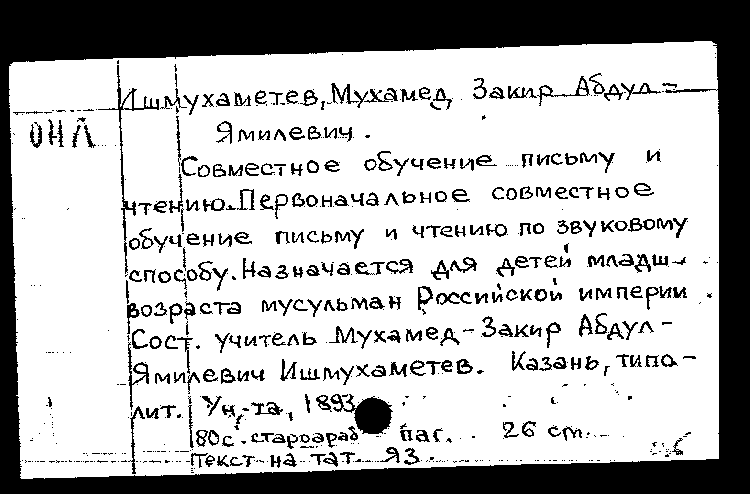 Ишмухаметев, Мухамед Закир Абдул-
Ямилевич.
ОНЛ
Совместное обучение письму и
чтению. Первоначальное совместное
обучение письму и чтению по звуковому
способу. Назначается для детей младш.
возраста мусульман Российской империи.
Сост. учитель Мухамед-Закир Абдул-
Ямилевич Ишмухаметев. Казань, типо-
лит. Ун-та, 1893
80с. староараб паг. 26 cm.
Текст на тат. яз.